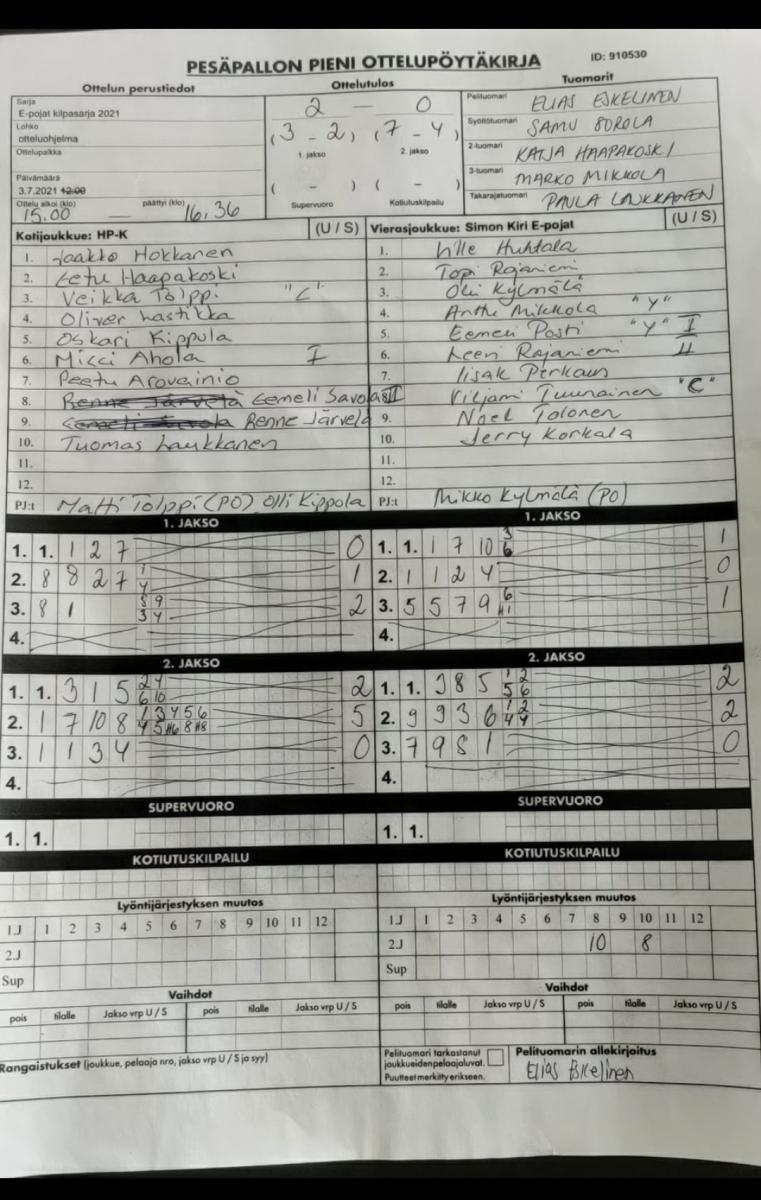 PESÄPALLON PIENI OTTELUPÖYTÄKIRJA ID: 910530
Ottelun perustiedot Ottelutulos Tuomarit
Sarja
E-pojat kilpasarja 2021
Lohko
otteluohjelma
Ottelupaikka
Päivämäärä
3.7.2021 12:00
Ottelu alkoi (klo) päättyi (klo)
15.00 — 16,36
2 — 0
(3 - 2) (7 - 4)
1. jakso 2. jakso
( - ) ( - )
Supervuoro Kotiutuskilpailu
Pelituomari ELIAS ESKELINEN
Syöttötuomari SAMU SOROLA
2-tuomari KATJA HAAPAKOSKI
3-tuomari MARKO MIKKOLA
Takarajatuomari PAULA LAUKKANEN
Kotijoukkue: HP-K (U / S)
1. Jaakko Hokkanen
2. Eetu Haapakoski
3. Veikka Tolppi "C"
4. Oliver Lastikka
5. Oskari Kippola
6. Micci Ahola I
7. Peetu Arovainio
8. Renne Järvelä Eemeli Savola II
9. Eemeli Savola Renne Järvelä
10. Tuomas Laukkanen
11.
12.
PJ:t Matti Tolppi (PO) Olli Kippola
Vierasjoukkue: Simon Kiri E-pojat (U / S)
1. Ville Huhtala
2. Topi Rajaniemi
3. Olli Kylmälä
4. Anttu Mikkola "Y"
5. Eemeli Posti "Y" I
6. Leevi Rajaniemi II
7. Iisak Perkaus
8. Viljami Tuunainen "C"
9. Noel Tolonen
10. Jerry Korkala
11.
12.
PJ:t Mikko Kylmälä (PO)
1. JAKSO
1. 1. 1 2 7 0
2. 8 8 2 7 1 4 1
3. 8 1 5 9 3 4 2
4.
1. JAKSO
1. 1. 1 7 10 3 6 1
2. 1 1 2 4 0
3. 5 5 7 9 6 1
4.
2. JAKSO
1. 1. 3 1 5 2 4 6 10 2
2. 1 7 10 8 1 3 4 5 6 4 5 #6 8 #8 5
3. 1 1 3 4 0
4.
2. JAKSO
1. 1. 3 8 5 1 2 5 6 2
2. 9 9 3 6 1 2 4 4 2
3. 7 9 8 1 0
4.
SUPERVUORO
1. 1.
SUPERVUORO
1. 1.
KOTIUTUSKILPAILU
KOTIUTUSKILPAILU
Lyöntijärjestyksen muutos
1.J 1 2 3 4 5 6 7 8 9 10 11 12
2.J
Sup
Lyöntijärjestyksen muutos
1.J 1 2 3 4 5 6 7 8 9 10 11 12
2.J 10 8
Sup
Vaihdot
pois tilalle Jakso vrp U / S pois tilalle Jakso vrp U / S
Vaihdot
pois tilalle Jakso vrp U / S pois tilalle Jakso vrp U / S
Rangaistukset (joukkue, pelaaja nro, jakso vrp U / S ja syy)
Pelituomari tarkastanut
joukkueiden pelaajaluvat.
Puutteet merkitty erikseen.
Pelituomarin allekirjoitus
Elias Eskelinen